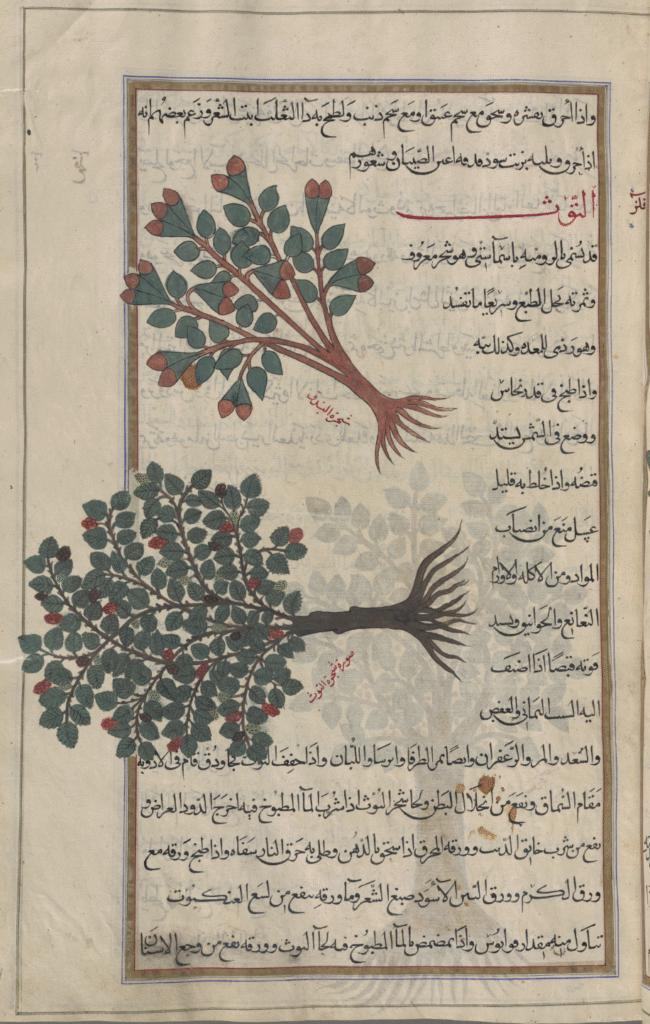 واذا احرق بقشره وسحق مع شحم عتيق او مع شحم دب ولطخ به داء الثعلب انبت الشعر وزعم بعضهم انه
اذا حرق وبل بزيت سود حدقه اعين الصبيان وشعورهم
التوث
قد يسمى بالرومية باسماء شتى وهو شجر معروف
وثمرته يحل الطبع وسريعا ما تفسد
وهو ردى للمعده وكذلك
واذا طبخ فى قدر نحاس
ووضع فى الشمس يشتد
قبضه واذا خلط به قليل
عسل منع من انصباب
المواد ومن الاكله والاورام
النغانغ والخوانيق ويشد
قوته قبضا اذا اضيف
اليه الشب اليمانى والعفص
والسعد والمر والزعفران وايضا ثمر الطرفا وايرسا واللبان واذا جفف التوث ودق قام فى الادويه
مقام السماق ونفع من انحلال البطن ولحا شجر التوث اذا شرب الماء المطبوخ فيه اخرج الدود العراض و
نفع من شرب خانق الذئب وورقه المحرق اذا سحق بالدهن وطلى به حرق النار شفاه واذا طبخ ورقه مع
ورق الكرم وورق التين الاسود صبغ الشعر وماء ورقه ينفع من لسع العنكبوت
تناول منه مقدار واذا تمضمض بالماء المطبوخ فيه لحاء التوث وورقه نفع من وجع الاسنان
شجرة البندق
صورة شجرة التوث